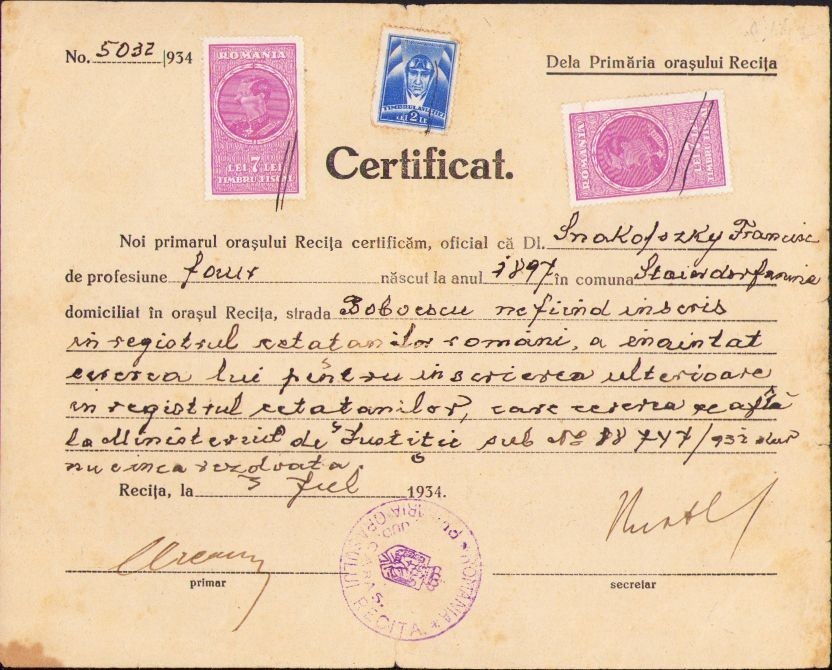 No. 5032 |934
Dela Primăria orașului Recița
ROMANIA
LEI 7 LEI
TIMBRU FISCAL
TIMBRUL AVIAȚIEI
LEI 2 LEI
ROMANIA
TIMBRU FISCAL
Certificat.
Noi primarul orașului Recița certificăm, oficial că Dl. Snakofszky Francisc
de profesiune faur născut la anul 1897 în comuna Staierdorfanina
domiciliat în orașul Recița, strada Boboescu nefiind inscris
in registrul cetatanilor români, a enaintat
cererea lui pentru inscrierea ulterioare
in registrul cetatanilor, care cererea se află
la Ministerul de Justitie sub No 88747/932 dar
nu e inca rezolvata.
Recița, la 3 Jul 1934.
primar
secretar
ROMANIA * PRIMĂRIA ORAȘULUI RECIȚA *
JUD. CARAȘ